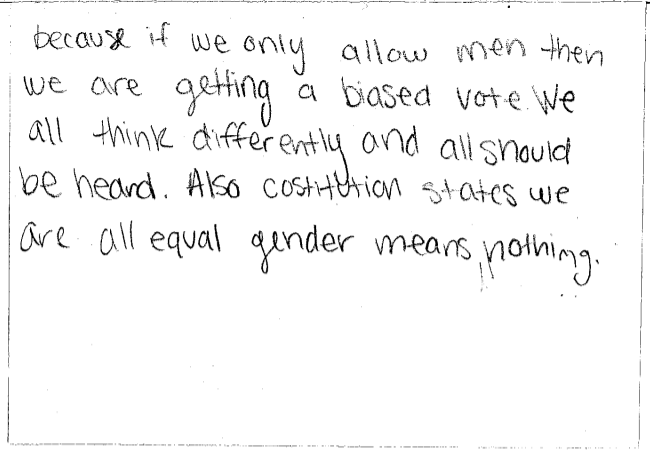 because if we only allow men then
we are getting a biased vote. We
all think differently and all should
be heard. Also costitution states we
are all equal gender means nothing.